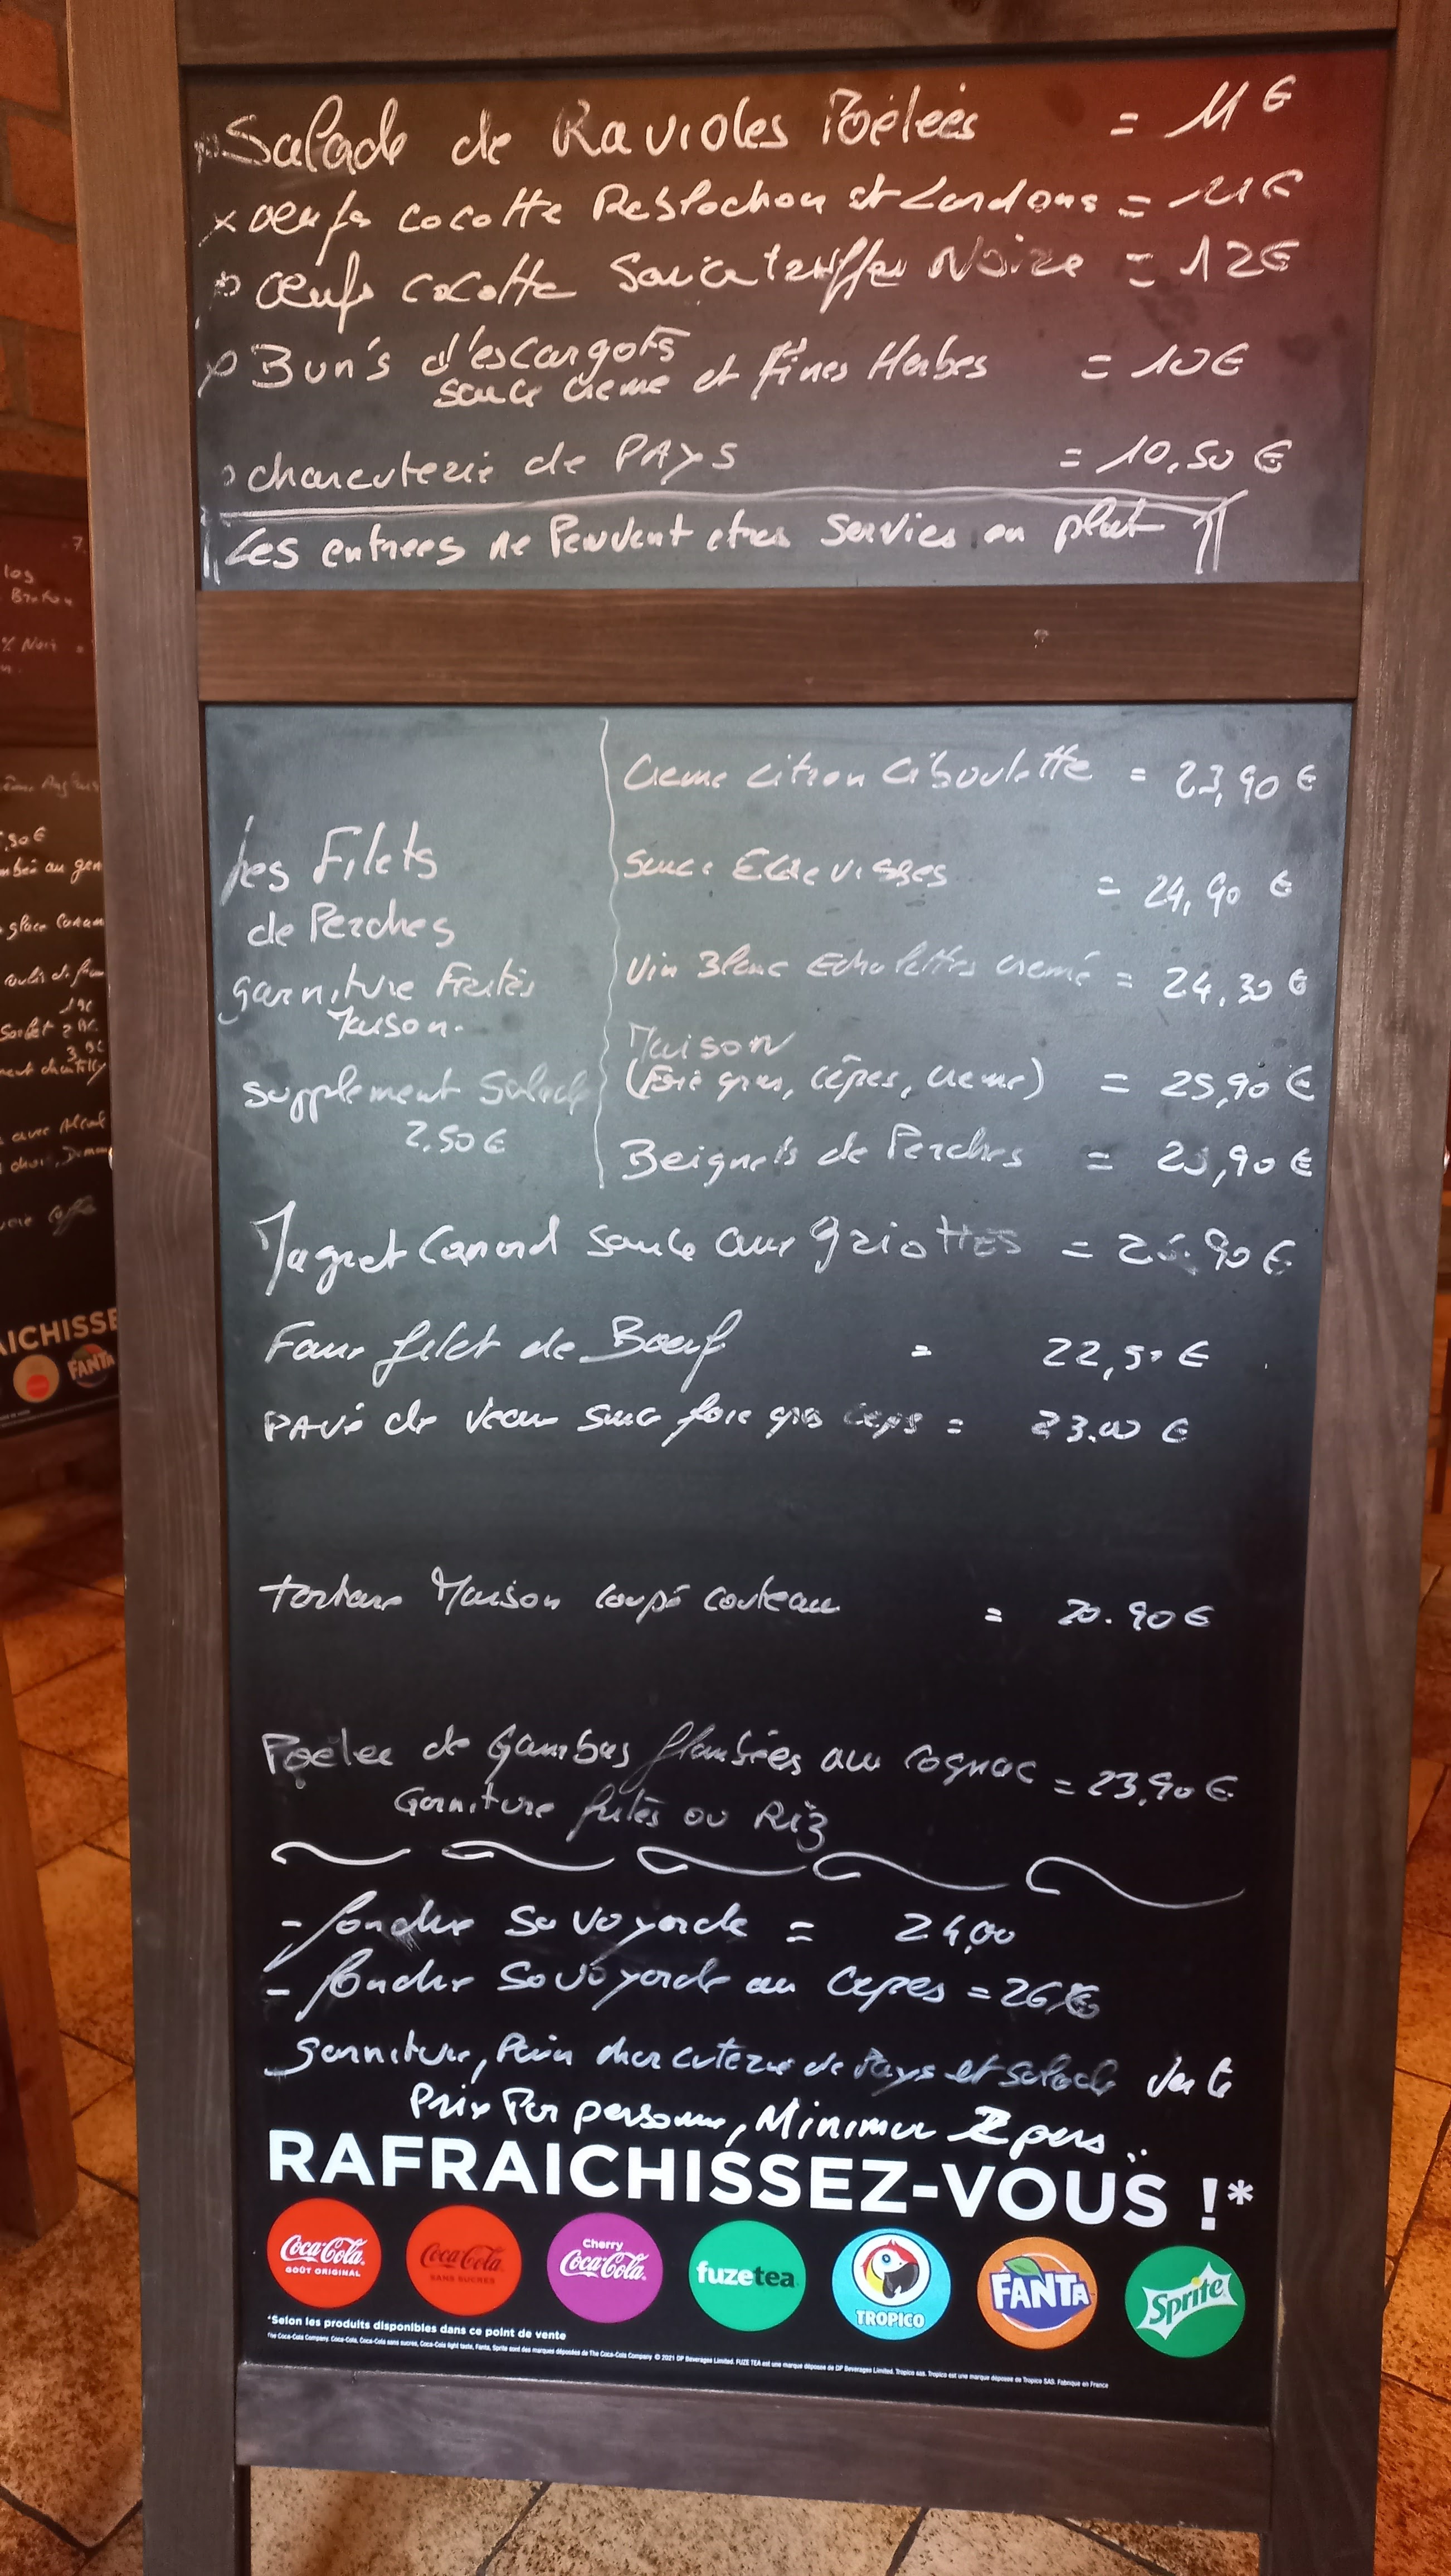 Salade de Ravioles Poêlées = 11€
x oeufs cocotte Reblochon et Lardons = 11€
oeufs cocotte Sauce truffes Noire = 12€
Bun's d'escargots = 10€
sauce creme et fines Herbes
charcuterie de PAYS = 10,50 €
Les entrees ne Peuvent etres Servies en plat
Les Filets
de Perches
garniture Frites
Maison.
supplement Salade
2.50€
Creme citron Ciboulette = 23,90 €
Sauce Ecrevisses = 24,90 €
Vin Blanc Echalottes cremé = 24.30 €
Maison
(Foie gras, cêpes, creme) = 25,90 €
Beignets de Perches = 23,90 €
Magret Canard sauce aux griottes = 90 €
Faux filet de Boeuf = 22,50 €
PAVÉ de Veau sauce foie gras ceps = 23.00 €
tartare Maison coupé couteau = 20.90 €
Poêlee de Gambas flambées au cognac = 23,90 €
Garniture frites ou Riz
- fondue Savoyarde = 24,00
- fondue Savoyarde au Cepes = 26€
garniture, Pain charcuterie de Pays et salade verte
Prix Par personne, Minimum 2 pers..
RAFRAICHISSEZ-VOUS !*
Coca-Cola GOÛT ORIGINAL
Coca-Cola SANS SUCRES
Cherry Coca-Cola
fuzetea
TROPICO
FANTA
Sprite
*Selon les produits disponibles dans ce point de vente
The Coca-Cola Company. Coca-Cola, Coca-Cola sans sucres, Coca-Cola light taste, Fanta, Sprite sont des marques déposées de The Coca-Cola Company © 2021 DP Beverages Limited. FUZE TEA est une marque déposée de DP Beverages Limited. Tropico sas. Tropico est une marque déposée de Tropico SAS. Fabriqué en France
AICHISSE
FANTA